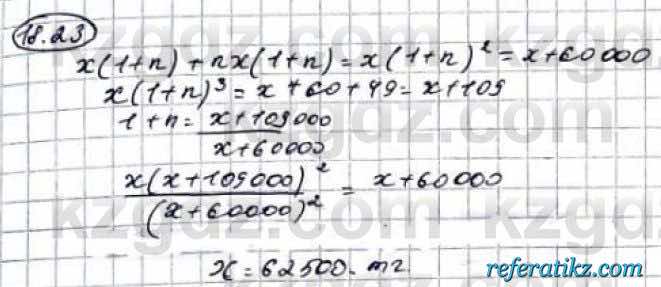 18.23
x(1+n)+nx(1+n)=x(1+n)²=x+60000
x(1+n)³=x+60+49=x+109
1+n=x+109000
x+60000
x(x+109000)²
(x+60000)²
=x+60000
x=62500. тг.
kzgdz.com
referatikz.com